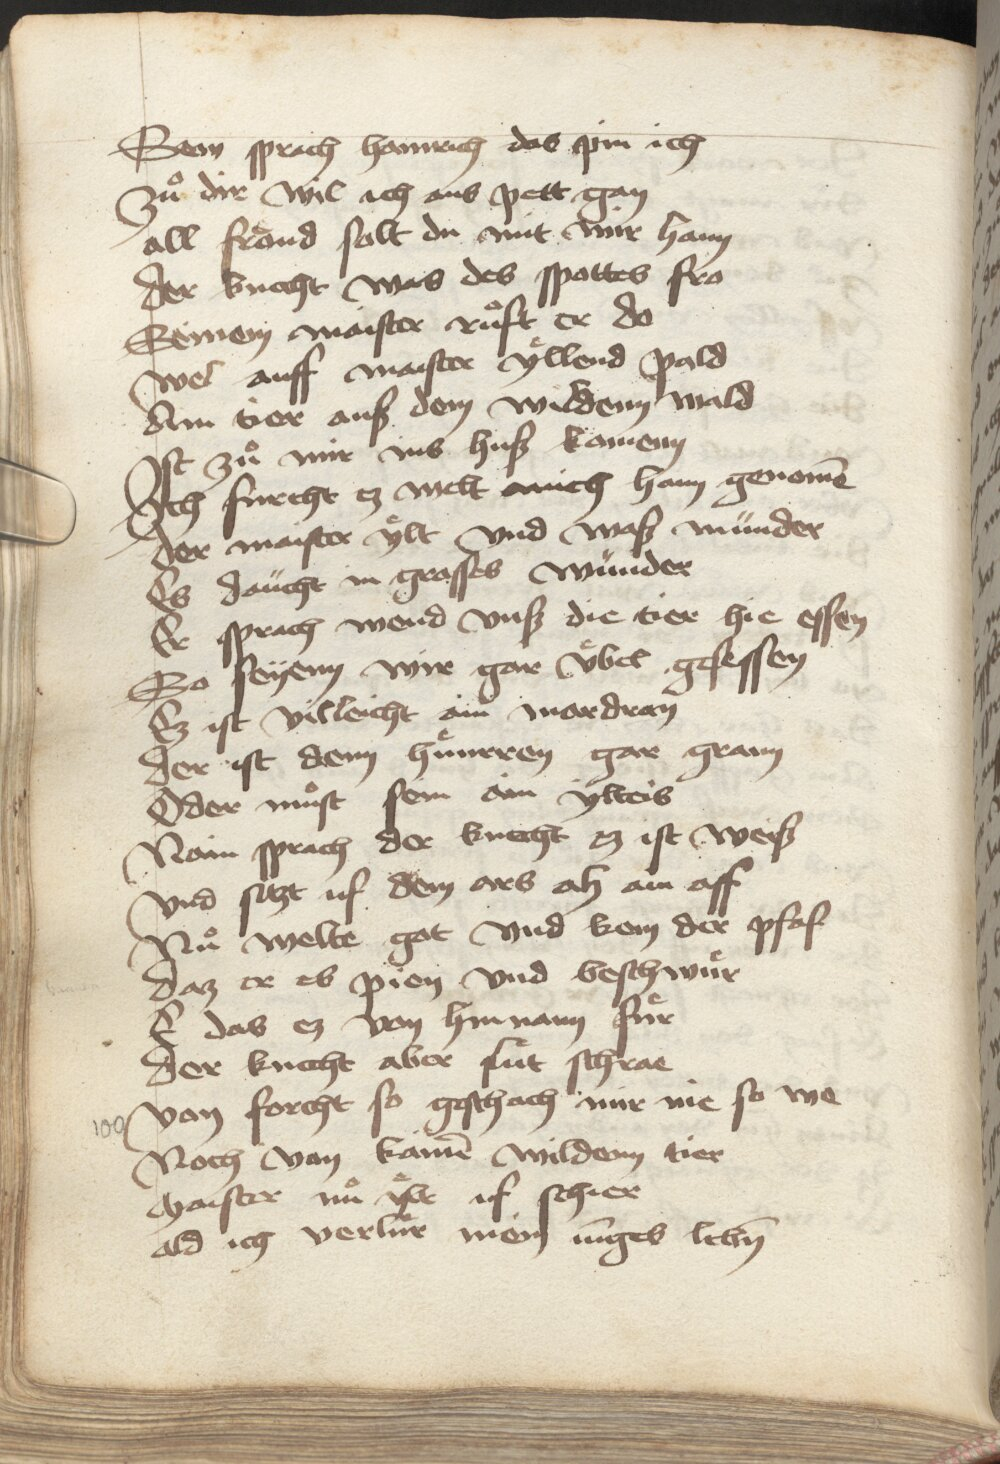 Gern sprach hainrich das pin ich
Zuͦ dir wil ich ans pett gan
all froͤud solt du mit mir hann
der knecht was des spottes fro
Seinem maister ruͦft er do
wol auff maister yͤllend pald
Ain tier auß dem wildenn wald
Ist zuͦ mir ins huß komenn
Ich furcht ez welt mich hann genome͂
der maister yͤlt vnd waß munder
Es daucht in grosses wunder
Er sprach wend vnß die tier hie essen
So seyenn wir gar uͤbel gesessen
Ez ist villeicht ain mordran
der ist denn huͤnrren gar gram
Oder muͦst sein ain ylteis
Nain sprach der knecht ez ist weiß
vnd sitzt uf dem ars alß ain aff
Nuͦ welte got vnd kem der pfaf
daz er es pien vnd beschwuͤr
E das ez von hinnann fuͤr
der knecht aber lut schrae
von forcht so geschach mir nie so we
100
Noch von kaine͂ wildenn tier
maister nuͦ yͤlt uf schier
ald ich verluͤr mein iu͂ges lebn͂